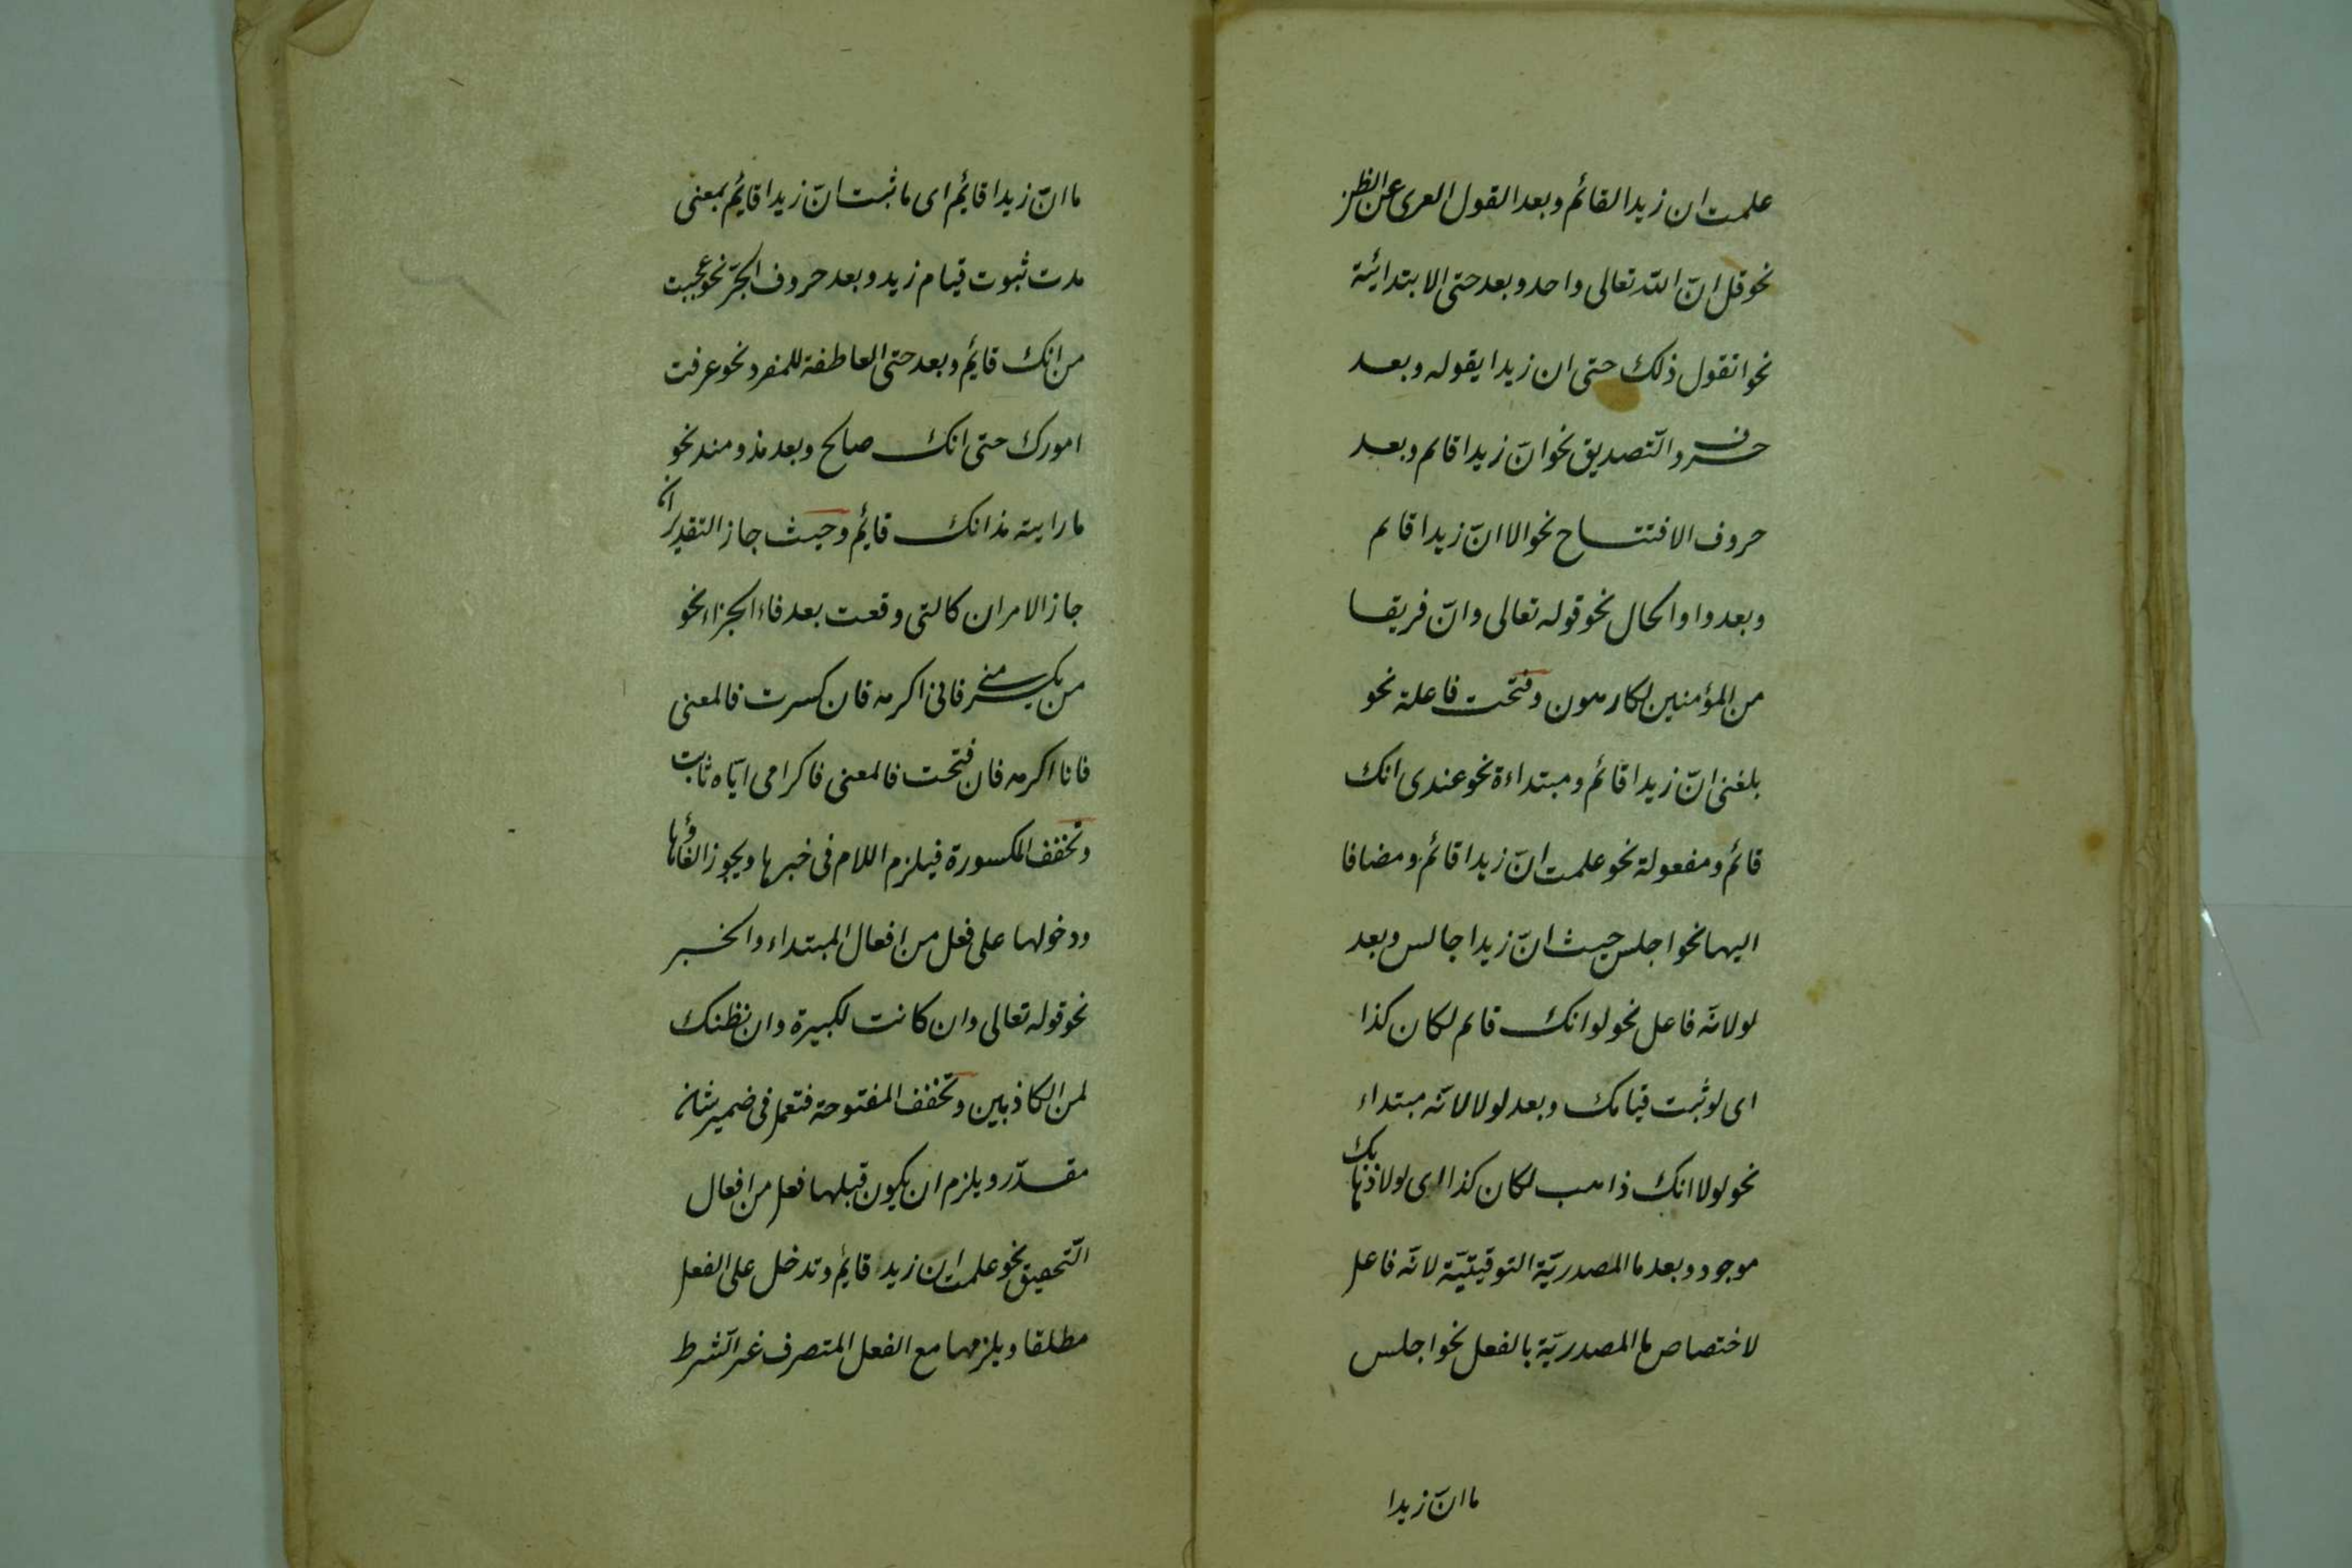 علمت ان زيدا لقائم وبعد القول العرى عن الظن
نحو قل انّ اللّه تعالى واحد وبعد حتى الابتدائية
نحو اتقول ذلك حتى ان زيدا يقوله وبعد
حروف التّصديق نحو انّ زيدا قائم وبعد
حروف الافتتاح نحو الا انّ زيدا قائم
وبعد واو الحال نحو قوله تعالى وانّ فريقا
من المؤمنين لكارهون وفتحت فاعلة نحو
بلغنى انّ زيدا قائم ومبتداءة نحو عندى انك
قائم ومفعولة نحو علمت انّ زيدا قائم ومضافا
اليها نحو اجلس حيث انّ زيدا جالس وبعد
لو لانّه فاعل نحو لو انك قائم لكان كذا
اى لو ثبت قيامك وبعد لولا لانّه مبتداء
نحو لولا انك ذاهب لكان كذا اى لولا ذهابك
موجود وبعد ما المصدريّة التوقيتيّة لانّه فاعل
لاختصاص ما المصدريّة بالفعل نحو اجلس
ما انّ زيدا
ما انّ زيدا قايم اى ما ثبت انّ زيدا قايم بمعنى
مدت ثبوت قيام زيد وبعد حروف الجرّ نحو عجبت
من انك قايم وبعد حتى العاطفة للمفرد نحو عرفت
امورك حتى انك صالح وبعد مذ ومنذ نحو
ما رايته مذ انك قايم وحيث جاز التقديران
جاز الامران كالتى وقعت بعد فاء الجزاء نحو
من يكرمنى فانى اكرمه فان كسرت فالمعنى
فانا اكرمه فان فتحت فالمعنى فاكرامى ايّاه ثابت
وتخفف المكسورة فيلزم اللام فى خبرها ويجوز الغائها
ودخولها على فعل من افعال المبتداء والخبر
نحو قوله تعالى وان كانت لكبيرة وان نظنك
لمن الكاذبين وتخفف المفتوحة فتعمل فى ضمير شان
مقدّر ويلزم ان يكون قبلها فعل من افعال
التّحقيق نحو علمت ان زيدا قايم وتدخل على الفعل
مطلقا ويلزمها مع الفعل المتصرف غير الشّرط